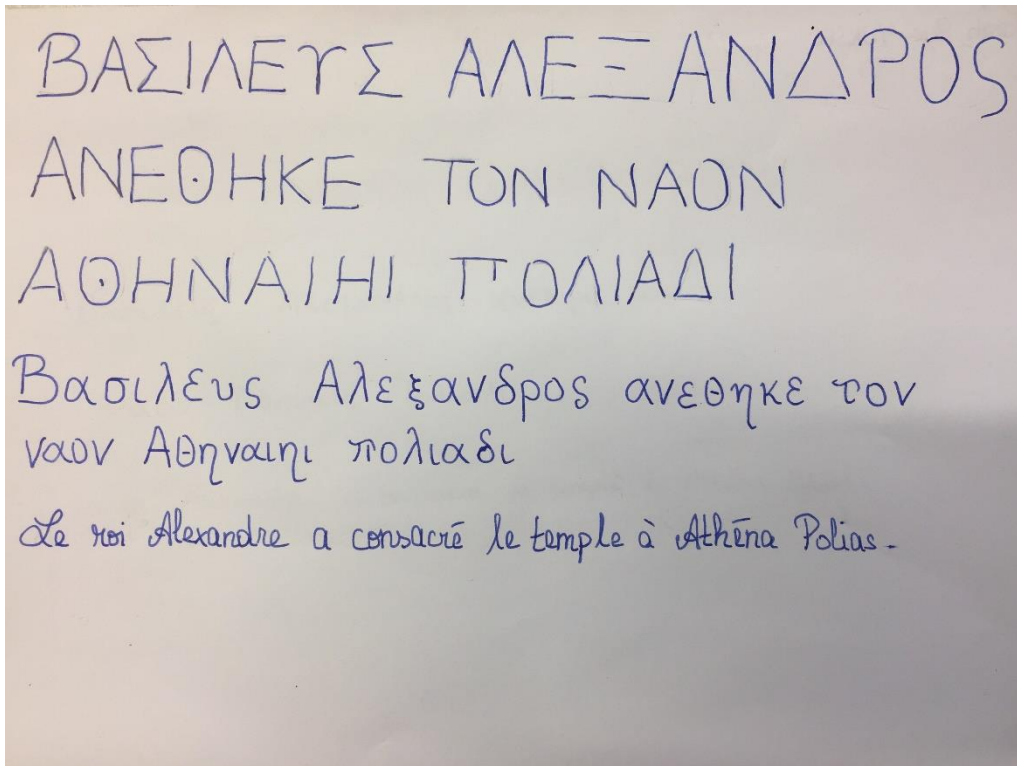 ΒΑΣΙΛΕΥΣ ΑΛΕΞΑΝΔΡΟς
ΑΝΕΘΗΚΕ ΤΟΝ ΝΑΟΝ
ΑΘΗΝΑΙΗΙ ΠΟΛΙΑΔΙ
Βασιλευς Αλεξανδρος ανεθηκε τον
ναον Αθηναιηι πολιαδι
Le roi Alexandre a consacré le temple à Athēna Polias.